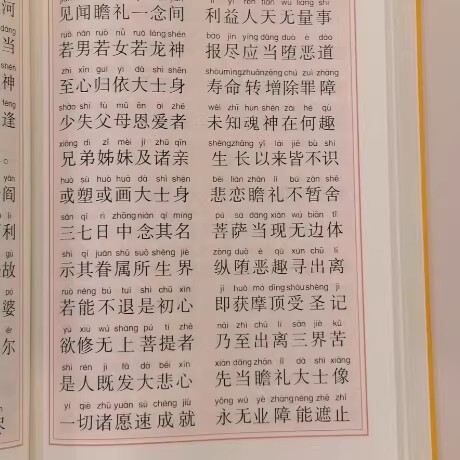 河
当
神
逢
阎
利
故
婆
尔
见闻瞻礼一念间 利益人天无量事
ruò nán ruò nǚ ruò lóng shén bào jìn yīng dāng duò è dào
若男若女若龙神 报尽应当堕恶道
zhì xīn guī yī dà shì shēn shòu mìng zhuǎn zēng chú zuì zhàng
至心归依大士身 寿命转增除罪障
shào shī fù mǔ ēn ài zhě wèi zhī hún shén zài hé qù
少失父母恩爱者 未知魂神在何趣
xiōng dì zǐ mèi jí zhū qīn shēng zhǎng yǐ lái jiē bù shí
兄弟姊妹及诸亲 生长以来皆不识
huò sù huò huà dà shì shēn bēi liàn zhān lǐ bù zàn shě
或塑或画大士身 悲恋瞻礼不暂舍
sān qī rì zhōng niàn qí míng pú sà dāng xiàn wú biān tǐ
三七日中念其名 菩萨当现无边体
shì qí juàn shǔ suǒ shēng jiè zòng duò è qù xún chū lí
示其眷属所生界 纵堕恶趣寻出离
ruò néng bù tuì shì chū xīn jí huò mó dǐng shòu shèng jì
若能不退是初心 即获摩顶受圣记
yù xiū wú shàng pú tí zhě nǎi zhì chū lí sān jiè kǔ
欲修无上菩提者 乃至出离三界苦
shì rén jì fā dà bēi xīn xiān dāng zhān lǐ dà shì xiàng
是人既发大悲心 先当瞻礼大士像
yí qiè zhū yuàn sù chéng jiù yǒng wú yè zhàng néng zhē zhǐ
一切诸愿速成就 永无业障能遮止